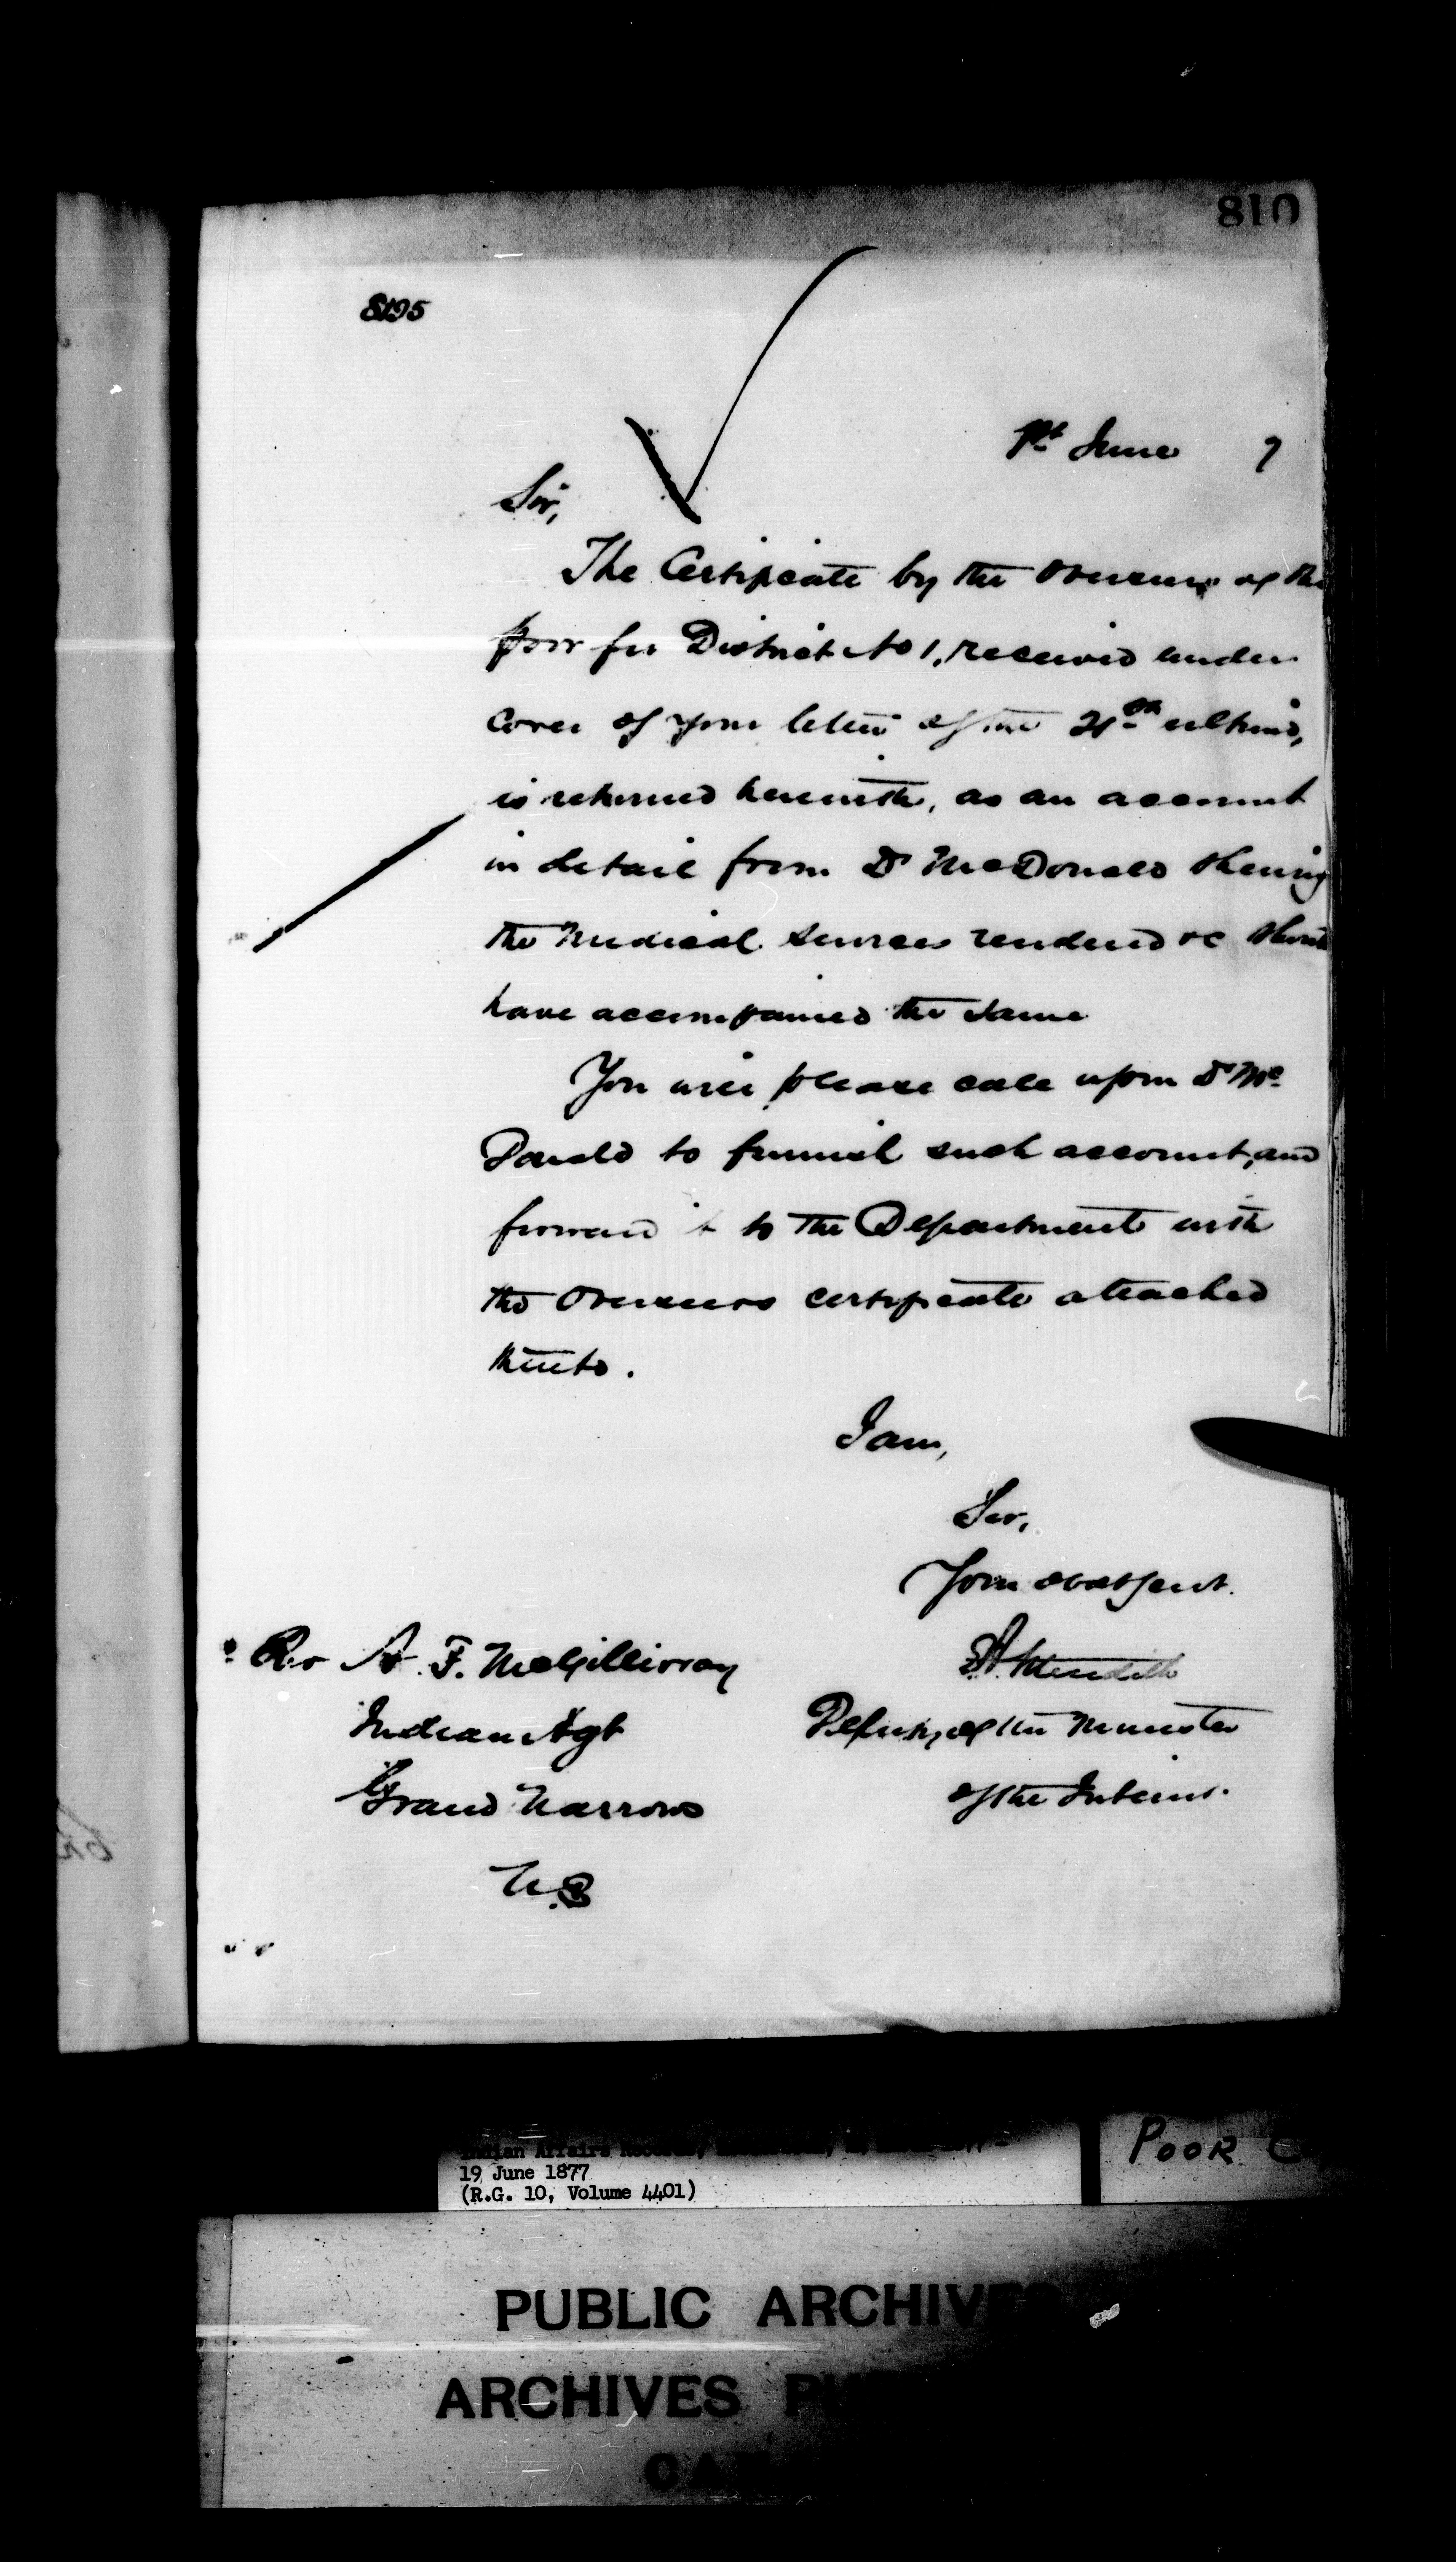 810
8195
1st June 7
Sir,
The Certificate by the Overseers of the
poor for District No 1, received under
cover of your letter of the 21st ultimo,
is returned herewith, as an account
in detail from Dr McDonald shewing
the Medical services rendered &c should
have accompanied the same
You will please call upon Dr Mc
Donald to furnish such account, and
forward it to the Department with
the Overseers certificate attached
thereto.
I am,
Sir,
Your obedt Servt.
Rev A. F. McGillivray
Indian Agt
Grand Narrows
N.B
Meredith
Deputy of the Minister
of the Interior.
Indian Affairs
19 June 1877
(R.G. 10, Volume 4401)
POOR C
PUBLIC ARCHIVES
ARCHIVES PU
CAN